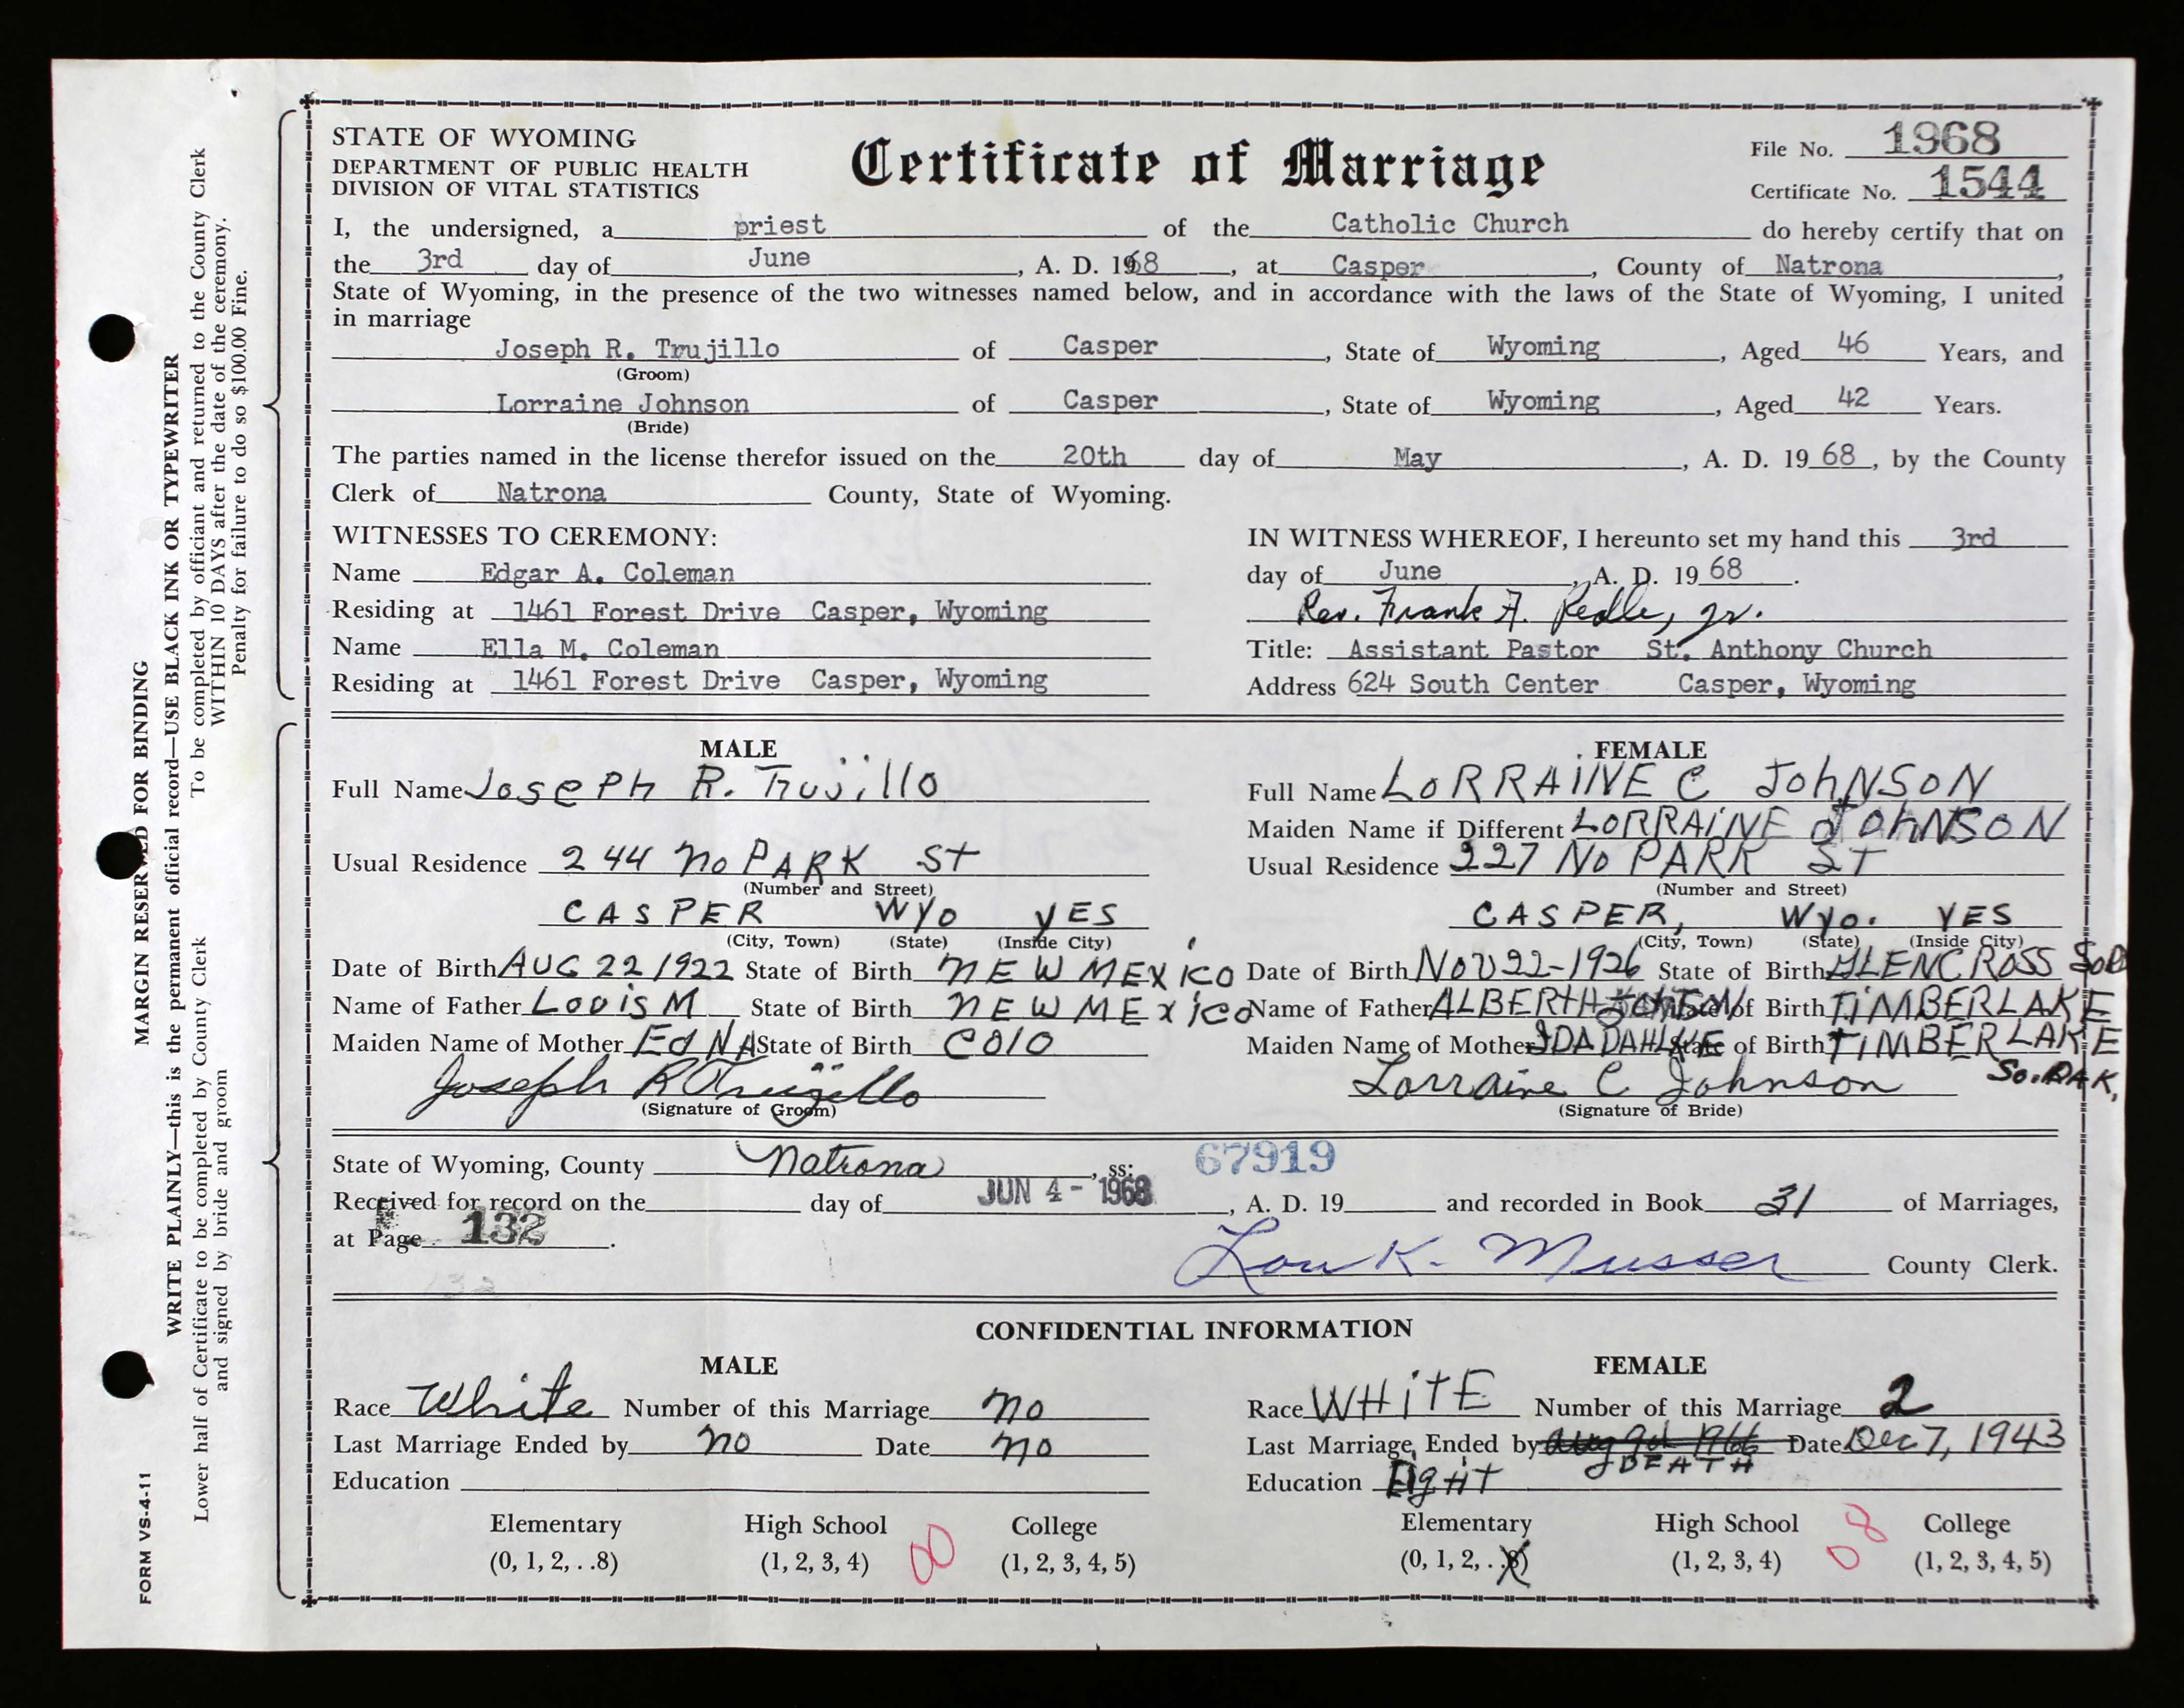 STATE OF WYOMING
DEPARTMENT OF PUBLIC HEALTH
DIVISION OF VITAL STATISTICS
Certificate of Marriage
File No. 1968
Certificate No. 1544
I, the undersigned, a priest of the Catholic Church do hereby certify that on
the 3rd day of June, A. D. 1968, at Casper, County of Natrona,
State of Wyoming, in the presence of the two witnesses named below, and in accordance with the laws of the State of Wyoming, I united
in marriage
Joseph R. Trujillo of Casper, State of Wyoming, Aged 46 Years, and
(Groom)
Lorraine Johnson of Casper, State of Wyoming, Aged 42 Years.
(Bride)
The parties named in the license therefor issued on the 20th day of May, A. D. 19 68, by the County
Clerk of Natrona County, State of Wyoming.
WITNESSES TO CEREMONY:
Name Edgar A. Coleman
Residing at 1461 Forest Drive Casper, Wyoming
Name Ella M. Coleman
Residing at 1461 Forest Drive Casper, Wyoming
IN WITNESS WHEREOF, I hereunto set my hand this 3rd
day of June, A. D. 19 68.
Rev. Frank A. Redle, jr.
Title: Assistant Pastor St. Anthony Church
Address 624 South Center Casper, Wyoming
MALE
Full Name Joseph R. Trujillo
Usual Residence 244 No PARK St
(Number and Street)
CASPER Wyo yES
(City, Town) (State) (Inside City)
Date of Birth AUG 22 1922 State of Birth NEW MEXiCO
Name of Father LouisM State of Birth NEW MEXiCO
Maiden Name of Mother EdNA State of Birth COlO
Joseph R Trujillo
(Signature of Groom)
FEMALE
Full Name LORRAiNE C JOhNSON
Maiden Name if Different LORRAiNE JOhNSON
Usual Residence 227 No PARK ST
(Number and Street)
CASPER, Wyo. YES
(City, Town) (State) (Inside City)
Date of Birth NOV 22-1926 State of Birth GLENCROSS SoD
Name of Father ALBERT H JOHNSON State of Birth TiMBERLAKE
Maiden Name of Mother IDA State of Birth TiMBER LAKE
So. DAK.
Lorraine C Johnson
(Signature of Bride)
State of Wyoming, County Natrona, ss:
67919
Received for record on the day of JUN 4 - 1968, A. D. 19 and recorded in Book 31 of Marriages,
at Page 132.
Lou K. Musser County Clerk.
CONFIDENTIAL INFORMATION
MALE
Race White Number of this Marriage no
Last Marriage Ended by no Date no
Education
Elementary High School College
(0, 1, 2, . .8) (1, 2, 3, 4) 00 (1, 2, 3, 4, 5)
FEMALE
Race WHiTE Number of this Marriage 2
Last Marriage Ended by Date Dec 7, 1943
DEATH
Education Eight
Elementary High School College
(0, 1, 2, . .8) (1, 2, 3, 4) 08 (1, 2, 3, 4, 5)
MARGIN RESERVED FOR BINDING
WRITE PLAINLY—this is the permanent official record—USE BLACK INK OR TYPEWRITER
To be completed by officiant and returned to the County Clerk
WITHIN 10 DAYS after the date of the ceremony.
Penalty for failure to do so $100.00 Fine.
Lower half of Certificate to be completed by County Clerk
and signed by bride and groom
FORM VS-4-11